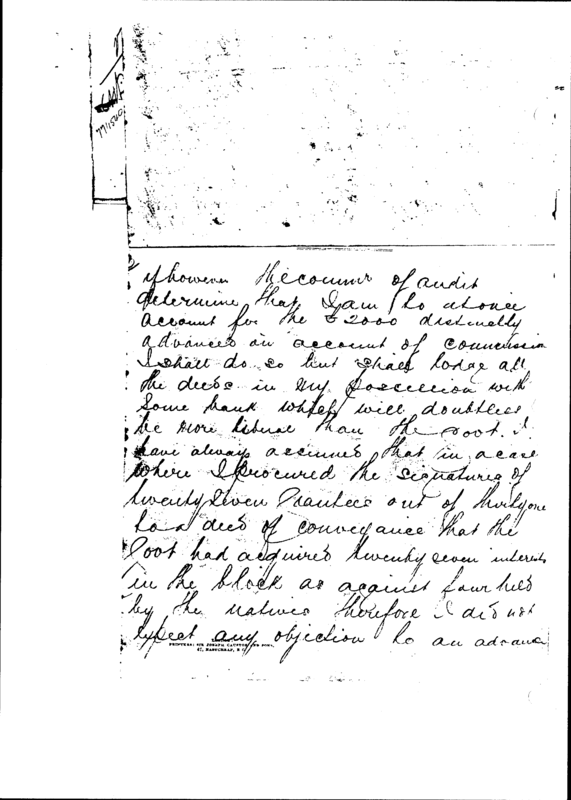 if however the commr of audit
determine that I am to at once
account for the £2000 distinctly
advanced on account of commission
I shall do so but shall lodge all
the deeds in my possession with
some bank which will doubtless
be more liberal than the Govt. I
have always assumed that in a case
where I procured the signatures of
twenty seven Grantees out of thirty one
to a deed of conveyance that the
Govt had acquired twenty seven interests
in the block as against four held
by the natives therefore I did not
expect any objection to an advance